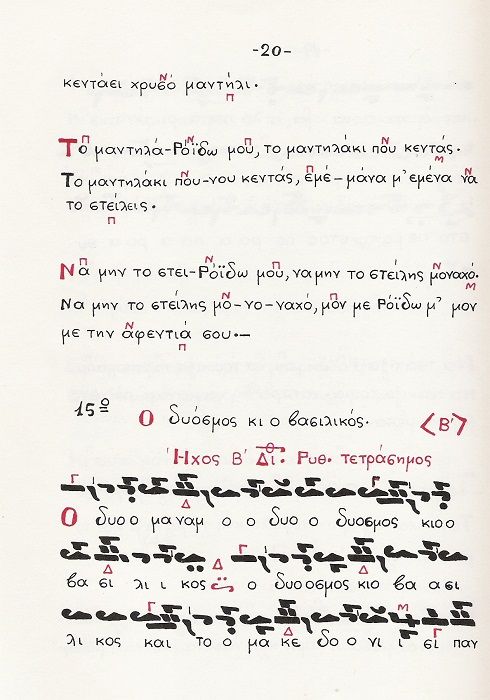 -20-
κεντάει χρυσό μαντήλι.
Το μαντηλά-Ρόϊδω μου, το μαντηλάκι που κεντάς.
Το μαντηλάκι που-νου κεντάς, εμέ-μάνα μ' εμένα να
το στείλεις.
Να μην το στει-Ρόϊδω μου, να μην το στείλης μοναχό.
Να μην το στείλης μο-νο-ναχό, μον με Ρόϊδω μ' μον
με την αφεντιά σου.-
15º Ο δυόσμος κι ο βασιλικός. <Β'>
Ήχος Β' Δι. Ρυθ. τετράσημος
Ο δυο ο μα ναμ ο ο δυο ο δυοσμος κιο ο
βα σι λι ι κος ο δυοοσμος κιο βα α σι
λι κος και το ο μα κε δο ο νι ι σι παν